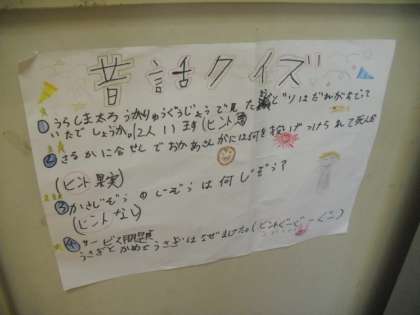 昔話クイズ
①うらしま太ろうがりゅうぐうじょうで見たおどりはだれがおどって
いたでしょうか。(2人います(ヒント
②さるかに合せんでおかあさんがには何を投げつけられて死んだ
(ヒント果実)
③かさじぞうのじぞうは何じぞう?
(ヒントなし)
④サービス問題
うさぎとかめでうさぎはなぜまけた。(ヒントぐーぐー